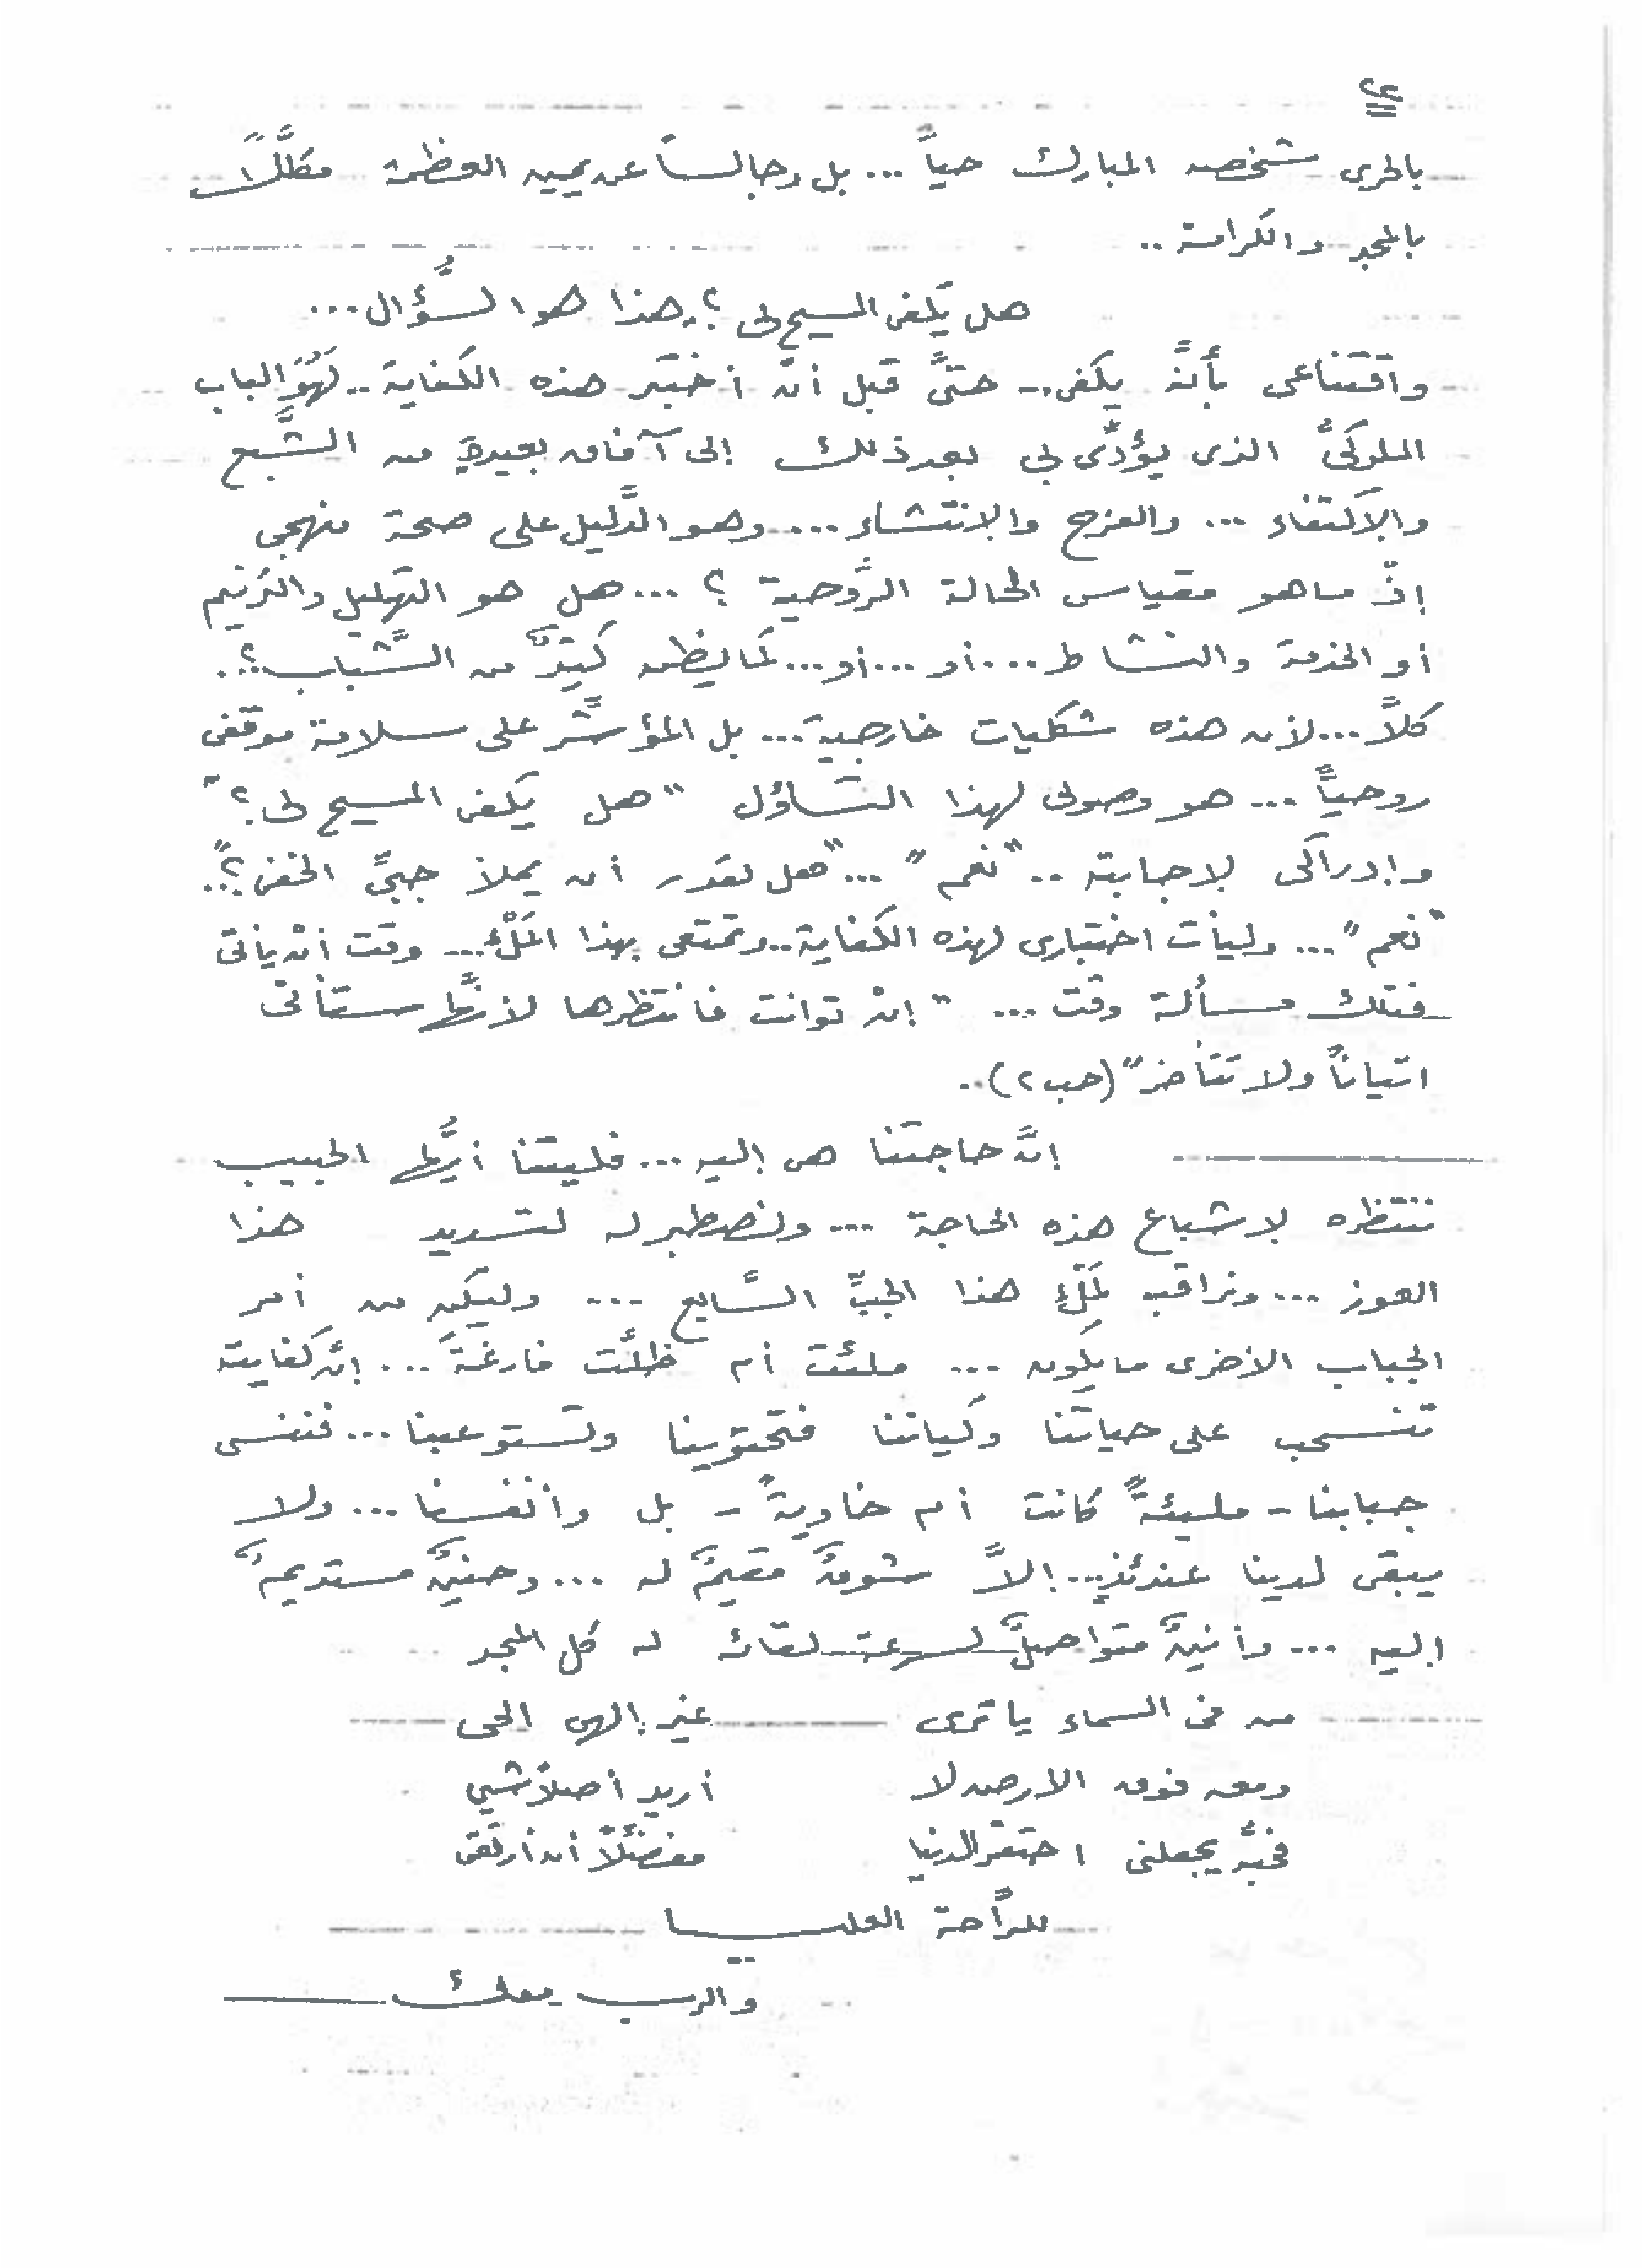 ـ٤ـ
بالحرى شخصه المبارك حياً ... بل وجالساً عن يمين العظمة مكلَّلاً
بالمجد والكرامة ..
هل يكفى المسيح لى ؟.. هذا هو السُّؤال ...
واقتناعى بأنَّه يكفى .. حتىَّ قبل أنْ أختبر هذه الكفاية .. لَهُوَ الباب
الملوكىُّ الذى يؤدِّى بى بعد ذلك إلى آفاق بعيدةٍ من الشَّبع
والاكتفاء ... والفرح والانتشاء .... وهو الدَّليل على صحة منهجى
إذْ ما هو مقياس الحالة الرُّوحية ؟ ... هل هو التهليل والترنيم
أو الخدمة والنشاط ... أو ... أو ... كما يظن كثيرٌ من الشَّباب ؟..
كلاَّ ... لأن هذه شكليات خارجية ... بل المؤشِّر على سلامة موقفى
روحياً ... هو وصولى لهذا التساؤل " هل يكفى المسيح لى ؟ "
وإدراكى لإجابته .. " نعم " ... " هل يقدر أن يملأ جبىِّ الخفى ؟ "..
" نعم " ... وليأت اختبارى لهذه الكفاية .. وتمتعى بهذا المَلْء ... وقت أنْ يأتى
فتلك مسألة وقت ... " إنْ توانت فانتظرها لأنَّها ستأتى
اتياناً ولا تتأخر " (حب ٢) ..
إنَّ حاجتنا هى إليه ... فليتنا أيُّها الحبيب
ننتظره لإشباع هذه الحاجة ... ولنصطبر له لتسديد هذا
العوز ... ونراقبه لِمَلْءِ هذا الجبِّ السَّابع ... وليكن من أمر
الجباب الأخرى ما يكون ... ملئت أم ظلَّت فارغةً ... إنَّ كفايته
تنسحب على حياتنا وكياننا فتحتوينا وتستوعبنا ... فننسى
جبابنا - مليئةً كانت أم خاويةً - بل وأنفسنا ... ولا
يبقى لدينا عندئذٍ ... إلاَّ شوقٌ مقيمٌ له ... وحنينٌ مستديمٌ
إليه ... وأنينٌ متواصلٌ لسرعة لقائه له كل المجد
من فى السماء يا ترى غير إلهى الحى
ومعه فوق الارض لا أريد أصلاً شىء
فحبُّه يجعلنى احتقر الدنيا مفضِّلاً أن أرتقى
للرَّاحة العليا
والرب معك